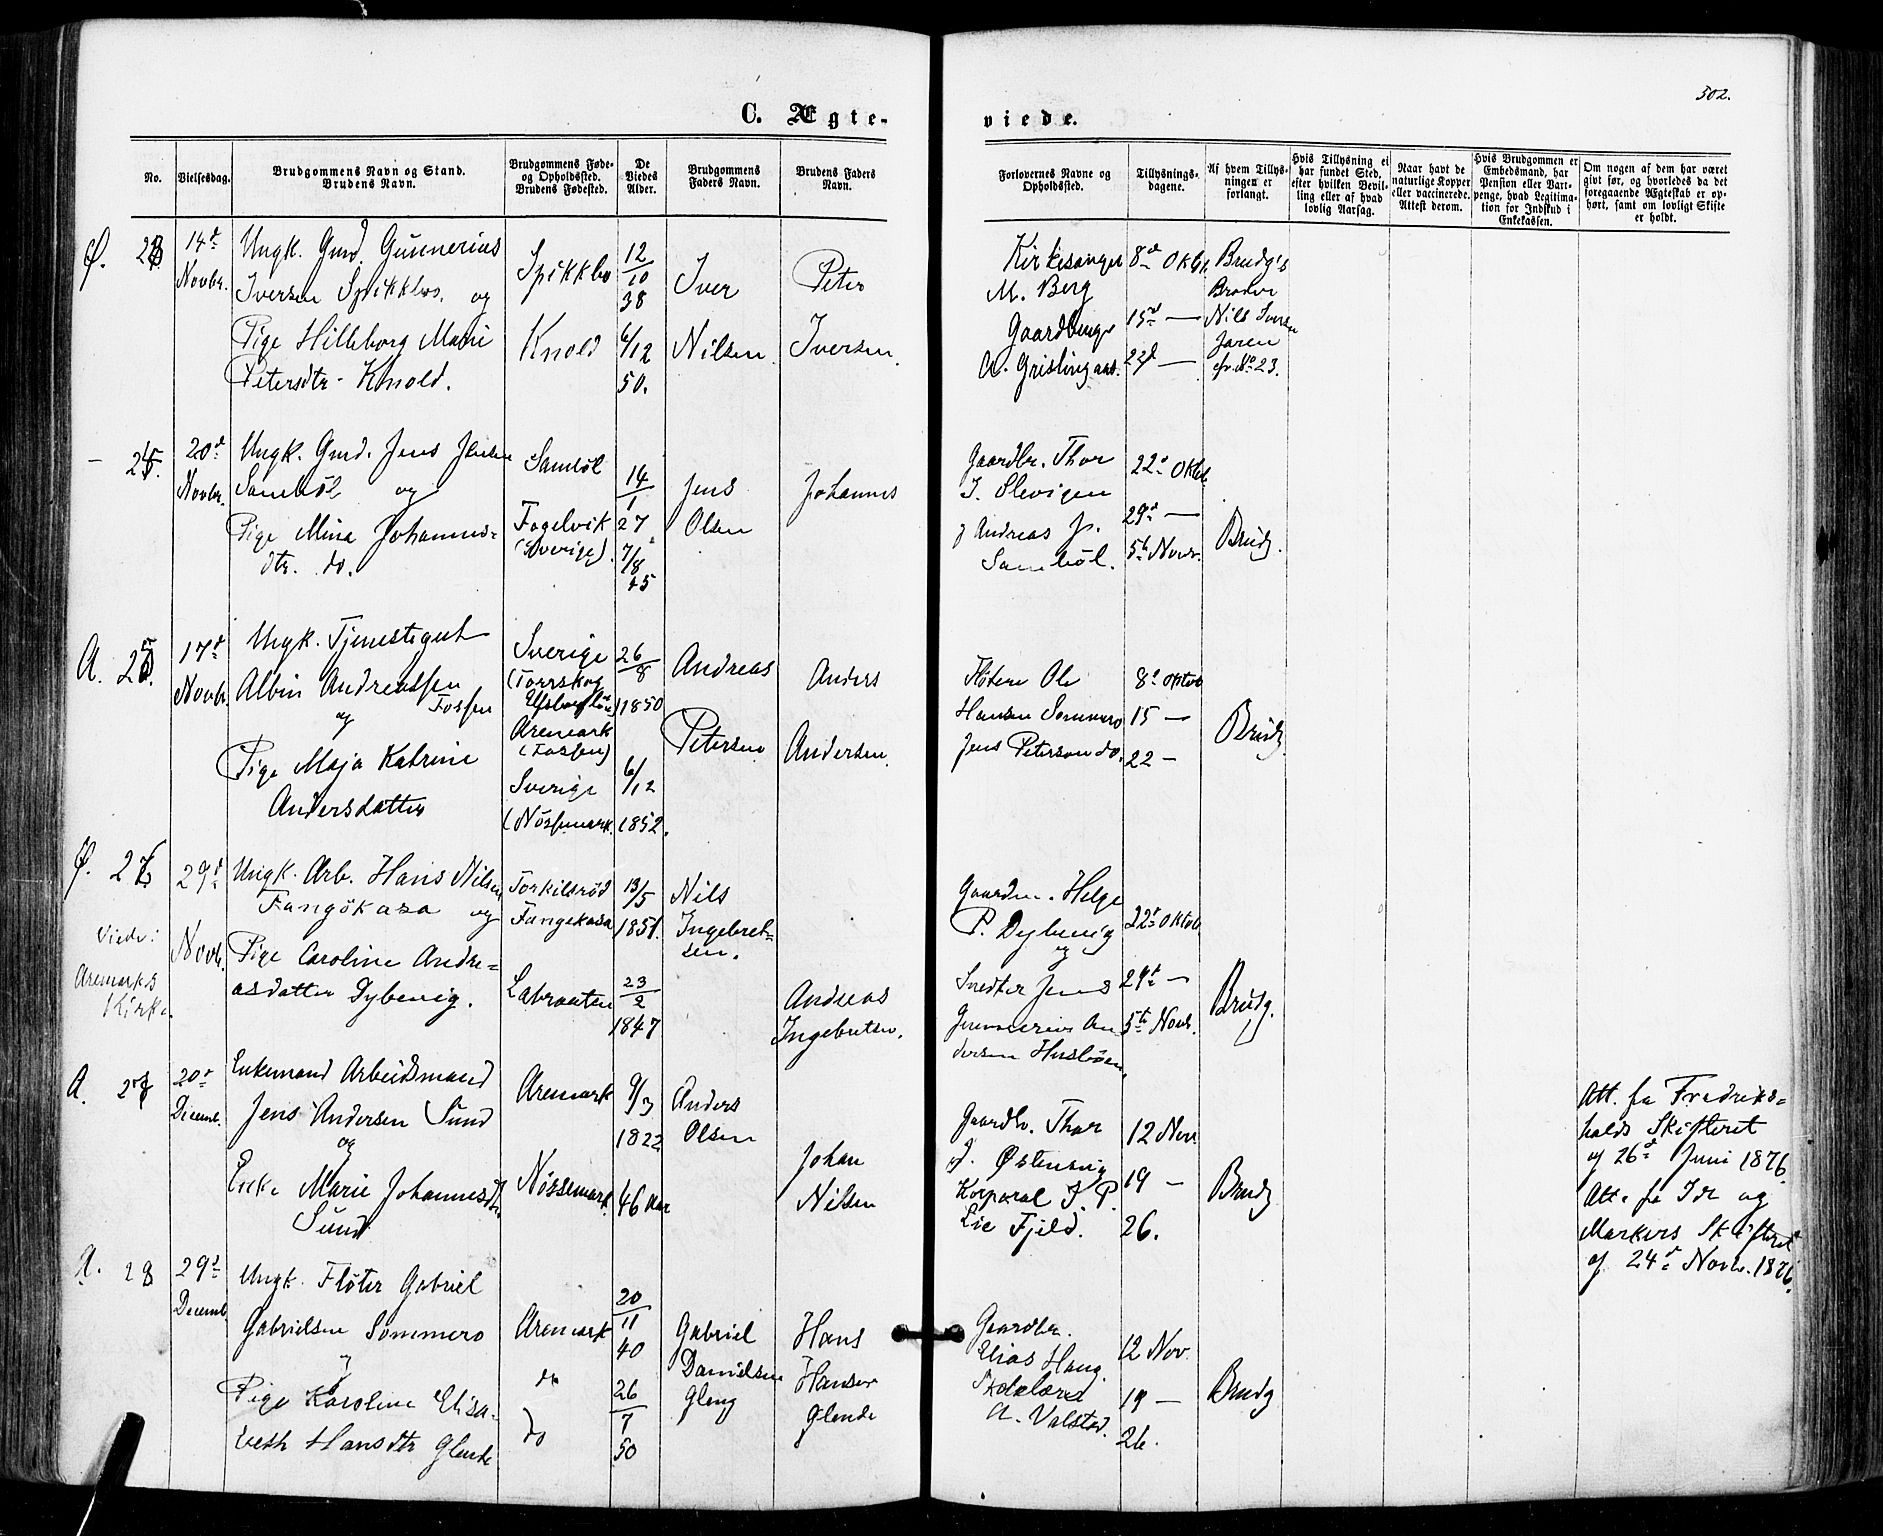 302.
C. Ægte-
viede.
No.
Vielsesdag.
Brudgommens Navn og Stand.
Brudens Navn.
Brudgommens Føde-
og Opholdssted.
Brudens Fødested.
De
Viedes
Alder.
Brudgommens
Faders Navn.
Brudens Faders
Navn.
Forlovernes Navne og
Opholdssted.
Tillysnings-
dagene.
Af hvem Tillys-
ningen er
forlangt.
Hvis Tillysning ei
har fundet Sted,
efter hvilken Bevil-
ling eller af hvad
lovlig Aarsag.
Naar havt de
naturlige Kopper
eller vaccinerede.
Attest derom.
Hvis Brudgommen er
Embedsmand, har
Pension eller Vart-
penge, hvad Legitima-
tion for Indskud i
Enkekassen.
Om nogen af dem har været
givt før, og hvorledes da det
foregaaende Ægteskab er op-
hørt, samt om lovligt Skifte
er holdt.
Ø.
14d
Novbr.
Ungk. Gmd. Gunnerius
Iversen Spikkbo. og
Pige Hilleborg Marie
Petersdtr. Knold.
Spikkbo
Knold
12
10
38
6/12
50.
Iver
Nilsen
Peter
Iversen
Kirkesanger
M. Berg
Gaardbruger
A. Grislingaas.
8d Oktbr.
15d —
22d —
Brudg's
Broder
Nils Iversen
Jaren
cfr. No 23.
—
20d
Novbr.
Ungk. Gmd. Jens Jensen
Sambøl og
Pige Mina Johannes-
dtr. do.
Sambøl
Fogelvik
(Sverige).
14
1
27.
7/8
45
Jens
Olsen
Johannes
Gaardbr. Thor
J. Slevigen
Andreas J.
Sambøl.
22d Oktbr.
29d —
5te Novbr.
Brudg.
A.
17d
Novbr.
Ungk. Tjenestegut
Albin Andreassen
Fossen
og
Pige Maja Katrine
Andersdatter
Sverige
(Torrskog
Elfsborgslän)
Aremark
(Fossen)
Sverige
(Nössemark.
26
8
1850
6/12
1852.
Andreas
Petersen
Anders
Andersen.
Fløtere Ole
Hansen Sommero
Jens Peterson do.
8d Oktob
15 —
22 —
Brudg.
Ø.
Viede i
Aremarks
Kirke.
29d
Novb.
Ungk. Arb. Hans Nilsen
Fangekasa og
Pige Caroline Andre-
asdatter Dybevig.
Torkilsrød
Fangekasa
Labraaten
13/5
1851.
23
2
1847
Nils
Ingebret-
sen.
Andreas
Ingebretsen.
Gaardm. Helge
P. Dybevig
og
Snedker Jens
Gunnerius An
dersen Husbøen.
22d Oktob.
29d —
5te Novb.
Brudg.
A.
20d
Decemb.
Enkemand Arbeidsmand
Jens Andersen Sund
og
Enke Marie Johannesdtr
Sund
Aremark
Nössemark
9/3
1822
46 Aar
Anders
Olsen
Johan
Nilsen
Gaardbr. Thor
J. Østensvig
Korporal J. P.
Lie Fjeld.
12 Nov.
19 —
26.
Brudg
Att. fra Fredriks-
halds Skifteret
af 26d Juni 1876.
Att. fra Ide og
Markers Skifteret
af 24d Novbr. 1876.
A.
28
29d
Decemb.
Ungk. Fløter Gabriel
Gabrielsen Sommero
og
Pige Karoline Elisa-
beth Hansdtr Glende
Aremark
do
do
20
11
40
26
7
50
Gabriel
Danielsen
Gleng
Hans
Hansen
Glende
Gaardbr.
Elias Haug
Skolelærer
A. Valstad.
12 Nov.
19 —
26.
Brudg